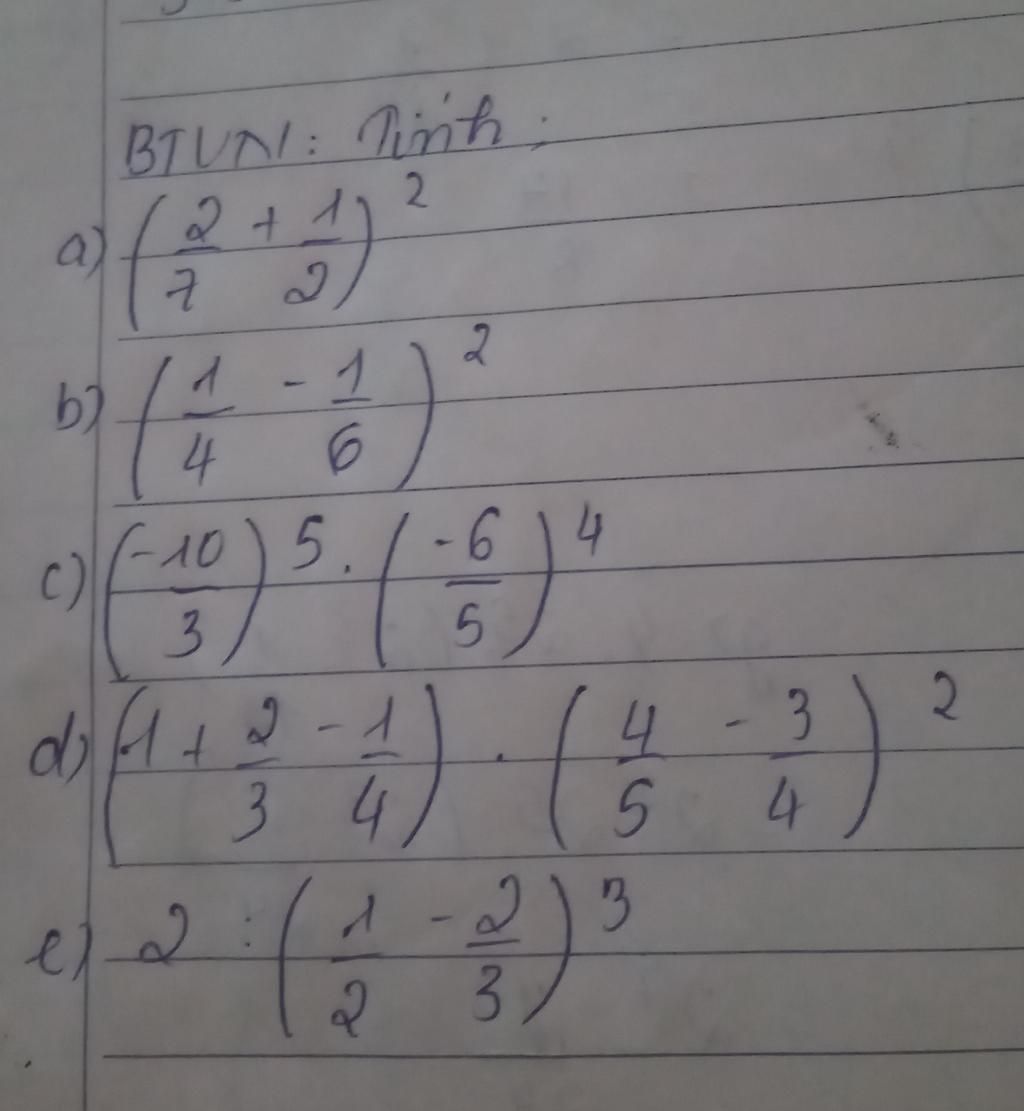 BTVN: Tính:
a) (2/7 + 1/2)^2
b) (1/4 - 1/6)^2
c) (-10/3)^5 . (-6/5)^4
d) (1 + 2/3 - 1/4) . (4/5 - 3/4)^2
e) 2 : (1/2 - 2/3)^3